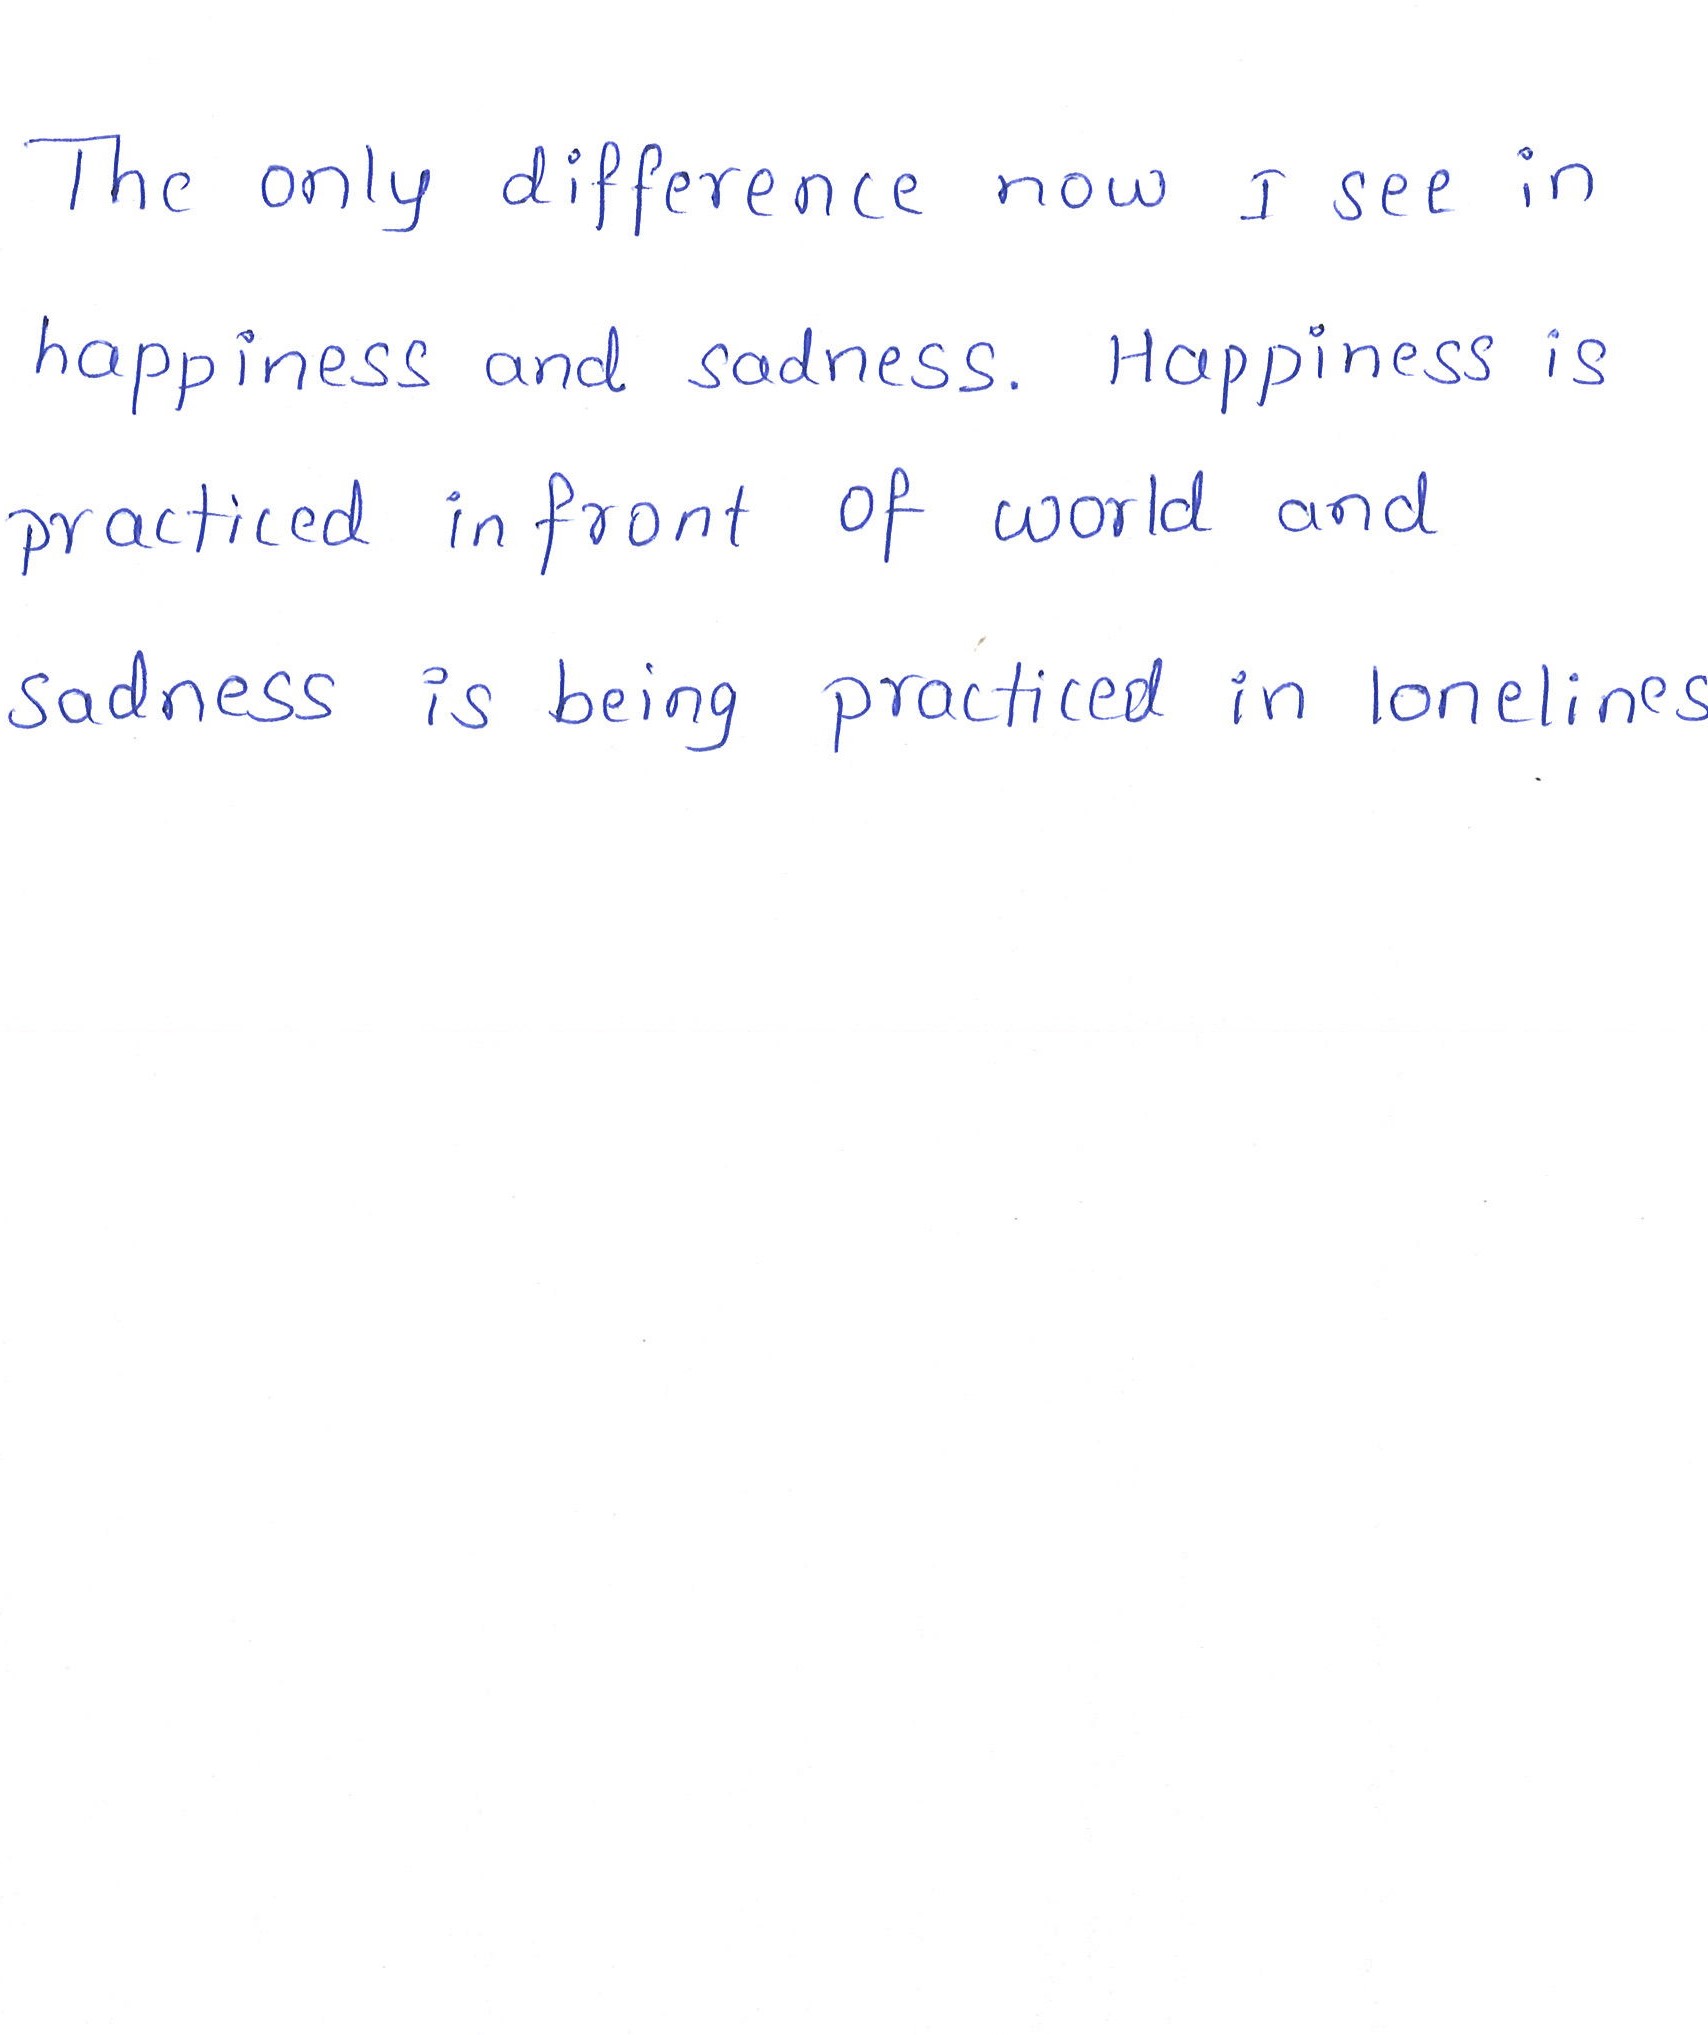 The only difference now I see in
happiness and sadness. Happiness is
practiced infront of world and
sadness is being practiced in lonelines